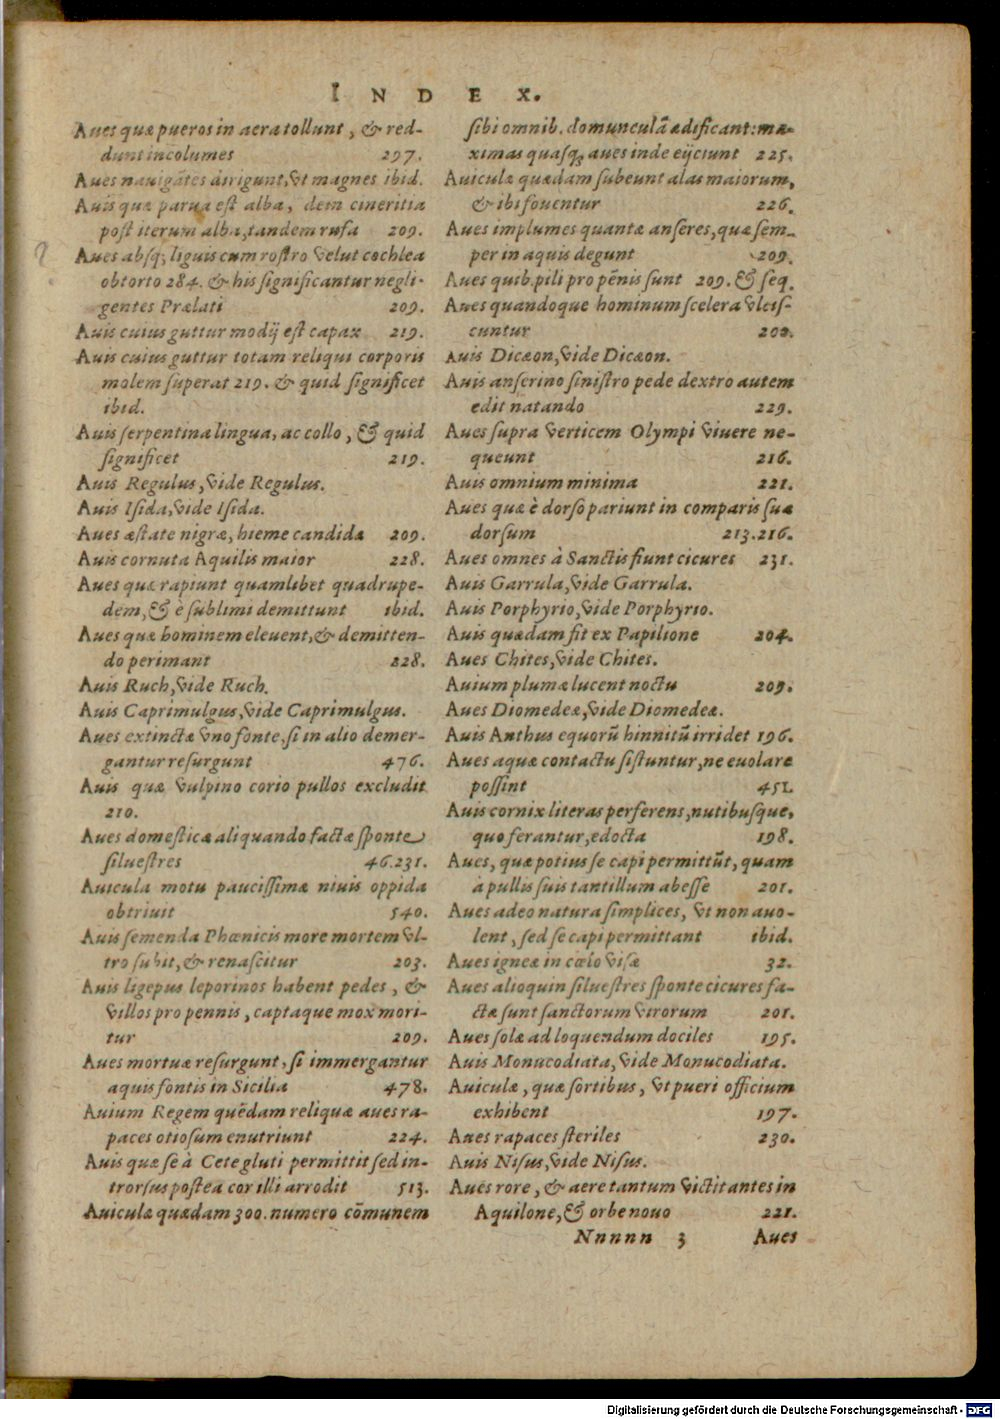 INDEX.
Aues quæ pueros in aera tollunt, & red-
dunt incolumes 297.
Aues nauigātes dirigunt, vt magnes ibid.
Auis quæ parua est alba, dein cineritia
post iterum alba, tandem rufa 209.
Aues absq; liguis cum rostro velut cochlea
obtorto 284. & his significantur negli-
gentes Prælati 209.
Auis cuius guttur modij est capax 219.
Auis cuius guttur totam reliqui corporis
molem superat 219. & quid significet
ibid.
Auis serpentina lingua, ac collo, & quid
significet 219.
Auis Regulus, vide Regulus.
Auis Isida, vide Isida.
Aues æstate nigræ, hieme candidæ 209.
Auis cornuta Aquilis maior 228.
Aues quæ rapiunt quamlibet quadrupe-
dem, & è sublimi demittunt ibid.
Aues quæ hominem eleuent, & demitten-
do perimant 228.
Auis Ruch, vide Ruch.
Auis Caprimulgus, vide Caprimulgus.
Aues extinctæ vno fonte, si in alio demer-
gantur resurgunt 476.
Auis quæ vulpino corio pullos excludit
210.
Aues domesticæ aliquando factæ sponte
siluestres 46.231.
Auicula motu paucissimæ niuis oppida
obtriuit 540.
Auis semenda Phœnicis more mortem vl-
tro subit, & renascitur 203.
Auis ligepus leporinos habent pedes, &
villos pro pennis, captaque mox mori-
tur 209.
Aues mortuæ resurgunt, si immergantur
aquis fontis in Sicilia 478.
Auium Regem quēdam reliquæ aues ra-
paces otiosum enutriunt 224.
Auis quæ se à Cete gluti permittit sed in-
trorsus postea cor illi arrodit 513.
Auiculæ quædam 300. numero cōmunem
sibi omnib. domunculā ædificant: ma-
ximas quasq; aues inde eijciunt 225.
Auiculæ quædam subeunt alas maiorum,
& ibi fouentur 226.
Aues implumes quantæ anseres, quæ sem-
per in aquis degunt 209.
Aues quib. pili pro pēnis sunt 209. & seq.
Aues quandoque hominum scelera vlcis-
cuntur 200.
Auis Dicæon, vide Dicæon.
Auis anserino sinistro pede dextro autem
edit natando 229.
Aues supra verticem Olympi viuere ne-
queunt 216.
Auis omnium minima 221.
Aues quæ è dorso pariunt in comparis suæ
dorsum 213.216.
Aues omnes à Sanctis fiunt cicures 231.
Auis Garrula, vide Garrula.
Auis Porphyrio, vide Porphyrio.
Auis quædam fit ex Papilione 204.
Aues Chites, vide Chites.
Auium plumæ lucent noctu 209.
Aues Diomedeæ, vide Diomedeæ.
Auis Anthus equorū hinnitū irridet 196.
Aues aquæ contactu sistuntur, ne euolare
possint 451.
Auis cornix literas perferens, nutibusque,
quo ferantur, edocta 198.
Aues, quæ potius se capi permittūt, quam
à pullis suis tantillum abesse 201.
Aues adeo natura simplices, vt non auo-
lent, sed se capi permittant ibid.
Aues igneæ in cœlo visæ 32.
Aues alioquin siluestres sponte cicures fa-
ctæ sunt sanctorum virorum 201.
Aues solæ ad loquendum dociles 195.
Auis Monucodiata, vide Monucodiata.
Auiculæ, quæ sortibus, vt pueri officium
exhibent 197.
Aues rapaces steriles 230.
Auis Nisus, vide Nisus.
Aues rore, & aere tantum victitantes in
Aquilone, & orbe nouo 221.
Nnnnn 3 Aues
Digitalisierung gefördert durch die Deutsche Forschungsgemeinschaft - DFG